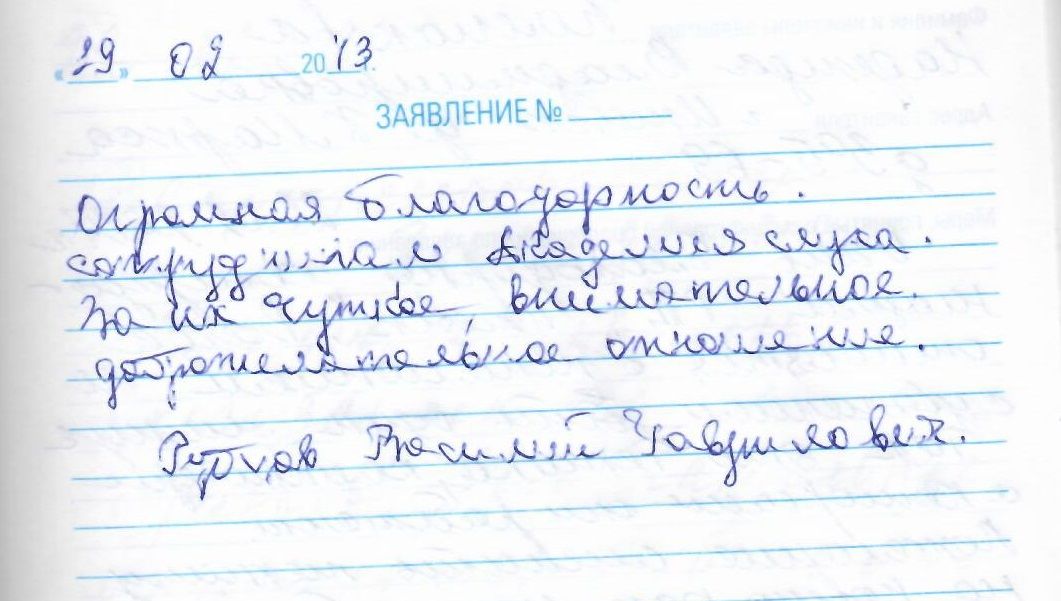 «29» 02 2013 г.
ЗАЯВЛЕНИЕ №
Огромная благодарность.
сотрудникам Академия слуха.
За их чуткое, внимательное.
доброжелательное отношение.
Рубцов Василий Гаврилович.